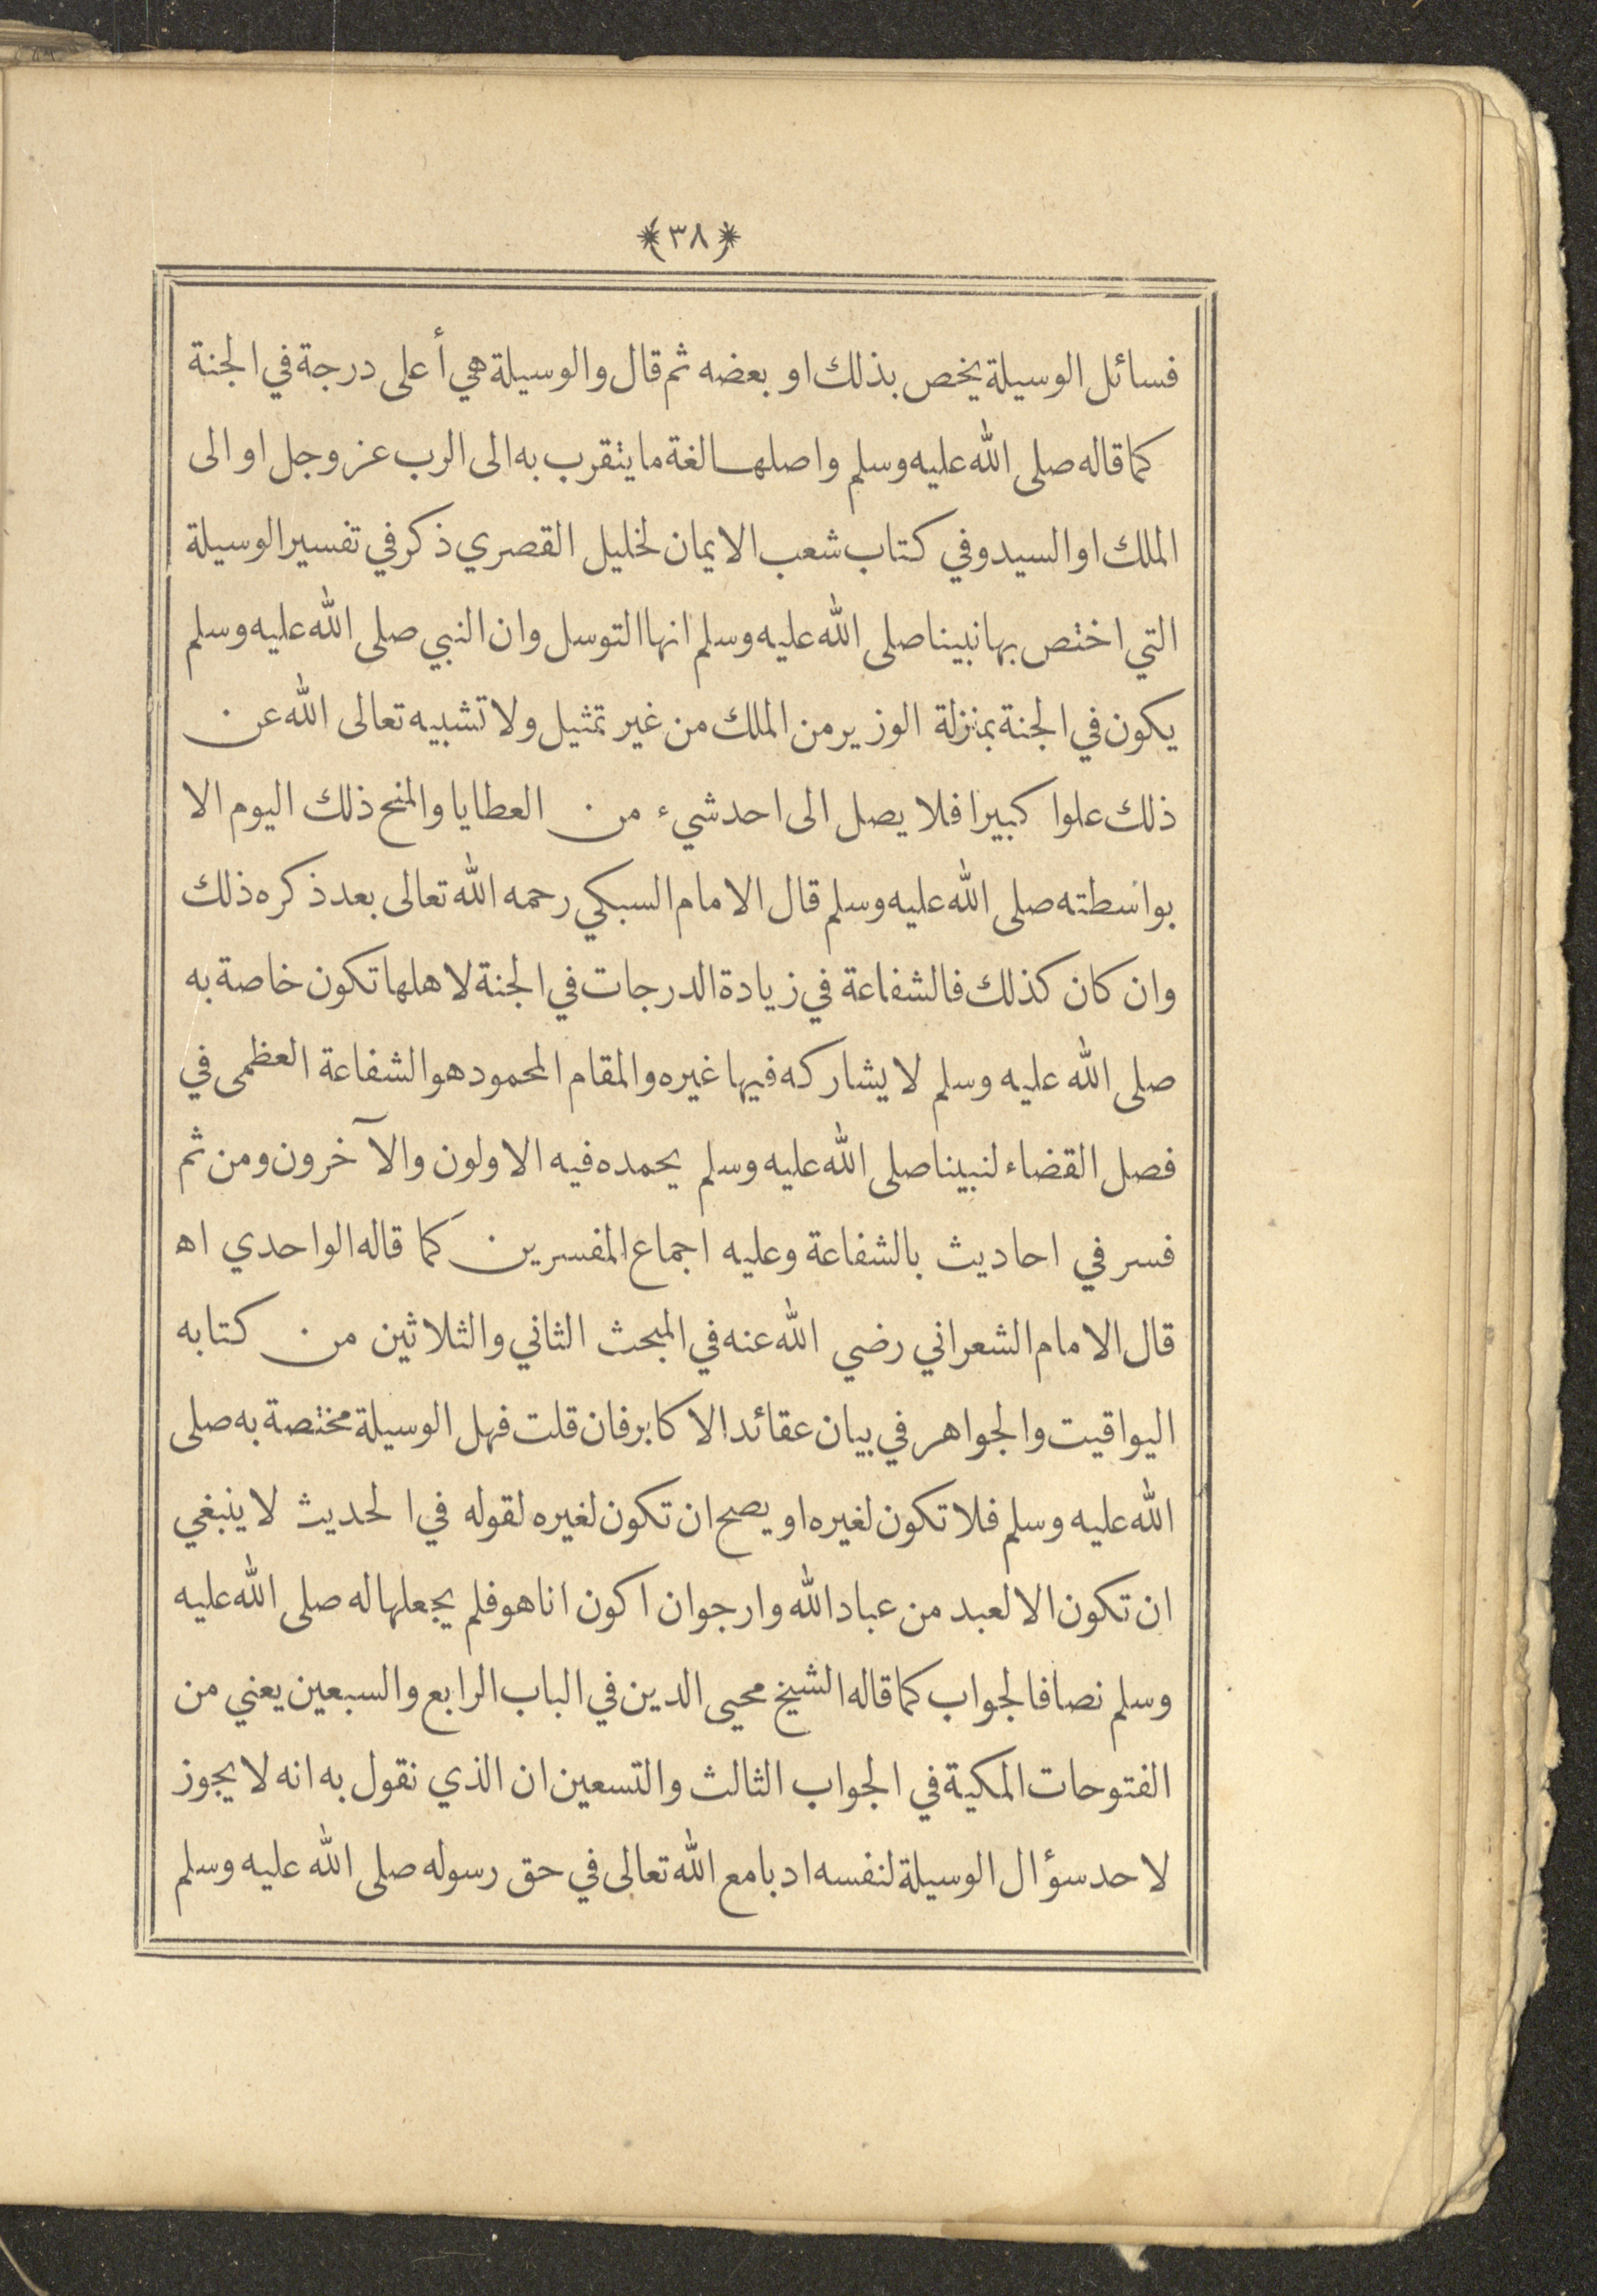 ﴿٣٨﴾
فسائل الوسيلة يخص بذلك او بعضه ثم قال والوسيلة هي أعلى درجة في الجنة
كما قاله صلى الله عليه وسلم واصلها لغة ما يتقرب به الى الرب عز وجل او الى
الملك او السيد وفي كتاب شعب الايمان لخليل القصري ذكر في تفسير الوسيلة
التي اختص بها نبينا صلى الله عليه وسلم انها التوسل وان النبي صلى الله عليه وسلم
يكون في الجنة بمنزلة الوزير من الملك من غير تمثيل ولا تشبيه تعالى الله عن
ذلك علوا كبيرا فلا يصل الى احد شيء من العطايا والمنح ذلك اليوم الا
بواسطته صلى الله عليه وسلم قال الامام السبكي رحمه الله تعالى بعد ذكره ذلك
وان كان كذلك فالشفاعة في زيادة الدرجات في الجنة لاهلها تكون خاصة به
صلى الله عليه وسلم لا يشاركه فيها غيره والمقام المحمود هو الشفاعة العظمى في
فصل القضاء لنبينا صلى الله عليه وسلم يحمده فيه الاولون والآخرون ومن ثم
فسر في احاديث بالشفاعة وعليه اجماع المفسرين كما قاله الواحدي اه
قال الامام الشعراني رضي الله عنه في المبحث الثاني والثلاثين من كتابه
اليواقيت والجواهر في بيان عقائد الاكابر فان قلت فهل الوسيلة مختصة به صلى
الله عليه وسلم فلا تكون لغيره او يصح ان تكون لغيره لقوله في الحديث لا ينبغي
ان تكون الا لعبد من عباد الله وارجو ان اكون انا هو فلم يجعلها له صلى الله عليه
وسلم نصا فالجواب كما قاله الشيخ محيى الدين في الباب الرابع والسبعين يعني من
الفتوحات المكية في الجواب الثالث والتسعين ان الذي نقول به انه لا يجوز
لاحد سؤال الوسيلة لنفسه ادبا مع الله تعالى في حق رسوله صلى الله عليه وسلم